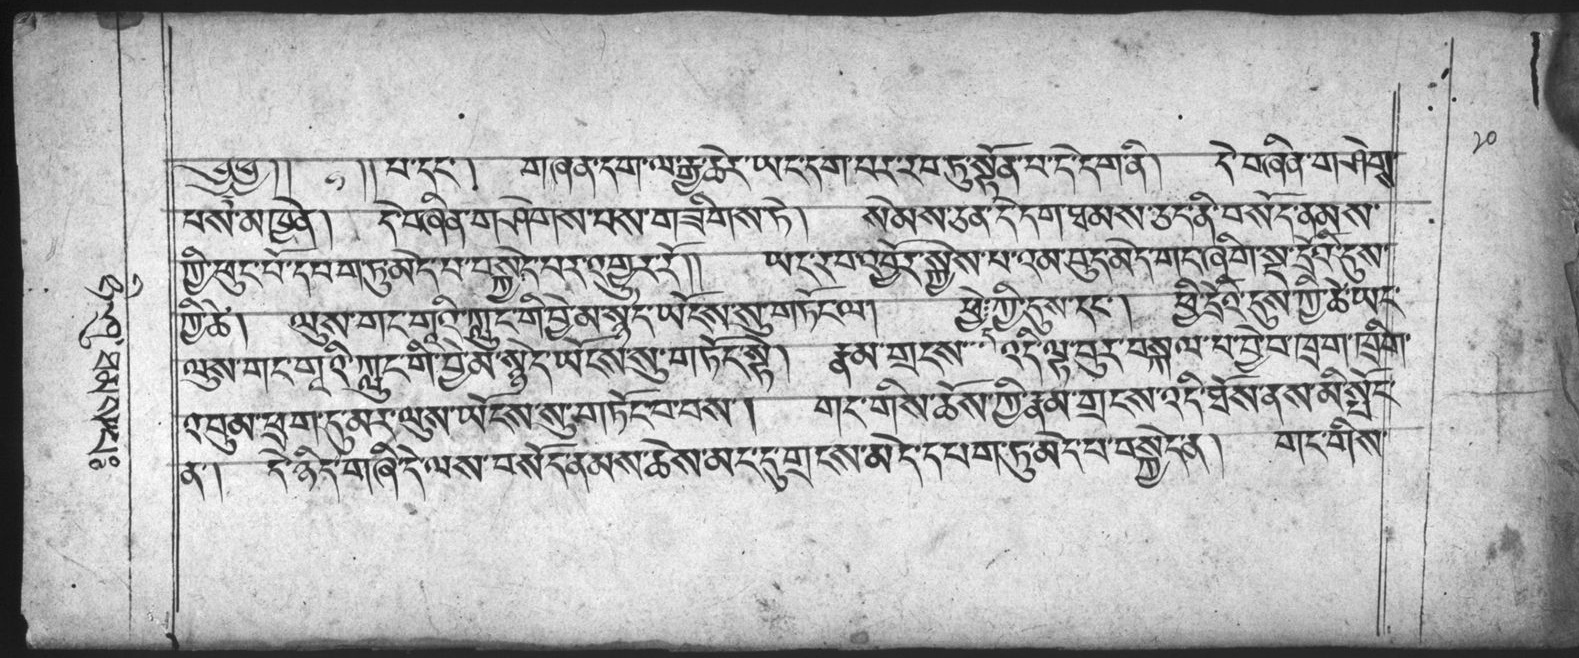 ༄༅།། ༡ །།པ་དང་། གཞན་དག་ལ་རྒྱ་ཆེར་ཡང་དག་པར་རབ་ཏུ་སྟོན་པ་དེ་དག་ནི། དེ་བཞིན་གཤེགས་
པས་མཁྱེན། དེ་བཞིན་གཤེགས་པས་གཟིགས་ཏེ། སེམས་ཅན་དེ་དག་ཐམས་ཅད་ནི་བསོད་ནམས་
ཀྱི་ཕུང་པོ་དཔག་ཏུ་མེད་པ་བསྐྱེད་པར་འགྱུར་རོ།། ཡང་རབ་འབྱོར་སྐྱེས་པ་འམ་བུད་མེད་གང་ཞིག་སྔ་དྲོའི་དུས་
ཀྱི་ཚེ། ལུས་གང་གཱའི་ཀླུང་གི་བྱེ་མ་སྙེད་ཡོངས་སུ་གཏོང་ལ། ཕྱེད་ཀྱི་དུས་དང་། ཕྱི་དྲོའི་དུས་ཀྱི་ཚེ་ཡང་
ལུས་གང་གཱའི་ཀླུང་གི་བྱེ་མ་སྙེད་ཡོངས་སུ་གཏོང་སྟེ། རྣམ་གྲངས་འདི་ལྟ་བུར་བསྐལ་པ་བྱེ་བ་ཁྲག་ཁྲིག་
འབུམ་ཕྲག་དུ་མར་ལུས་ཡོངས་སུ་གཏོང་བ་བས། གང་གིས་ཆོས་ཀྱི་རྣམ་གྲངས་འདི་ཐོས་ནས་མི་སྤོང་
ན། དེ་ཉིད་གཞི་དེ་ལས་བསོད་ནམས་ཆེས་མང་དུ་གྲངས་མེད་དཔག་ཏུ་མེད་པ་བསྐྱེད་ན། གང་གིས་
༢༠